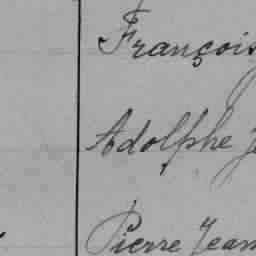 François
Adolphe
Pierre Jean